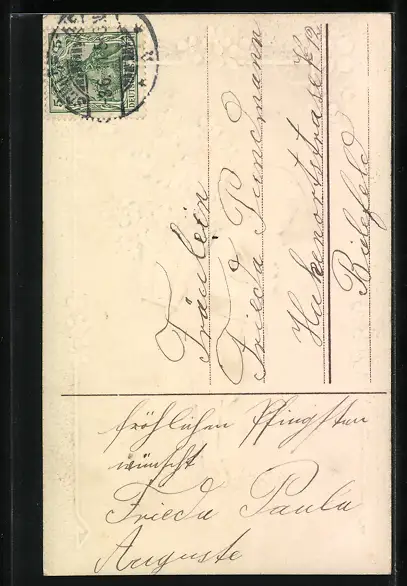 5 5
DEUTSCHES REICH
Fräulein
Frieda Pundmann
Hakenortstrasse 12
Bielefeld
fröhlichen Pfingsten
wünscht
Frieda Paula
Auguste